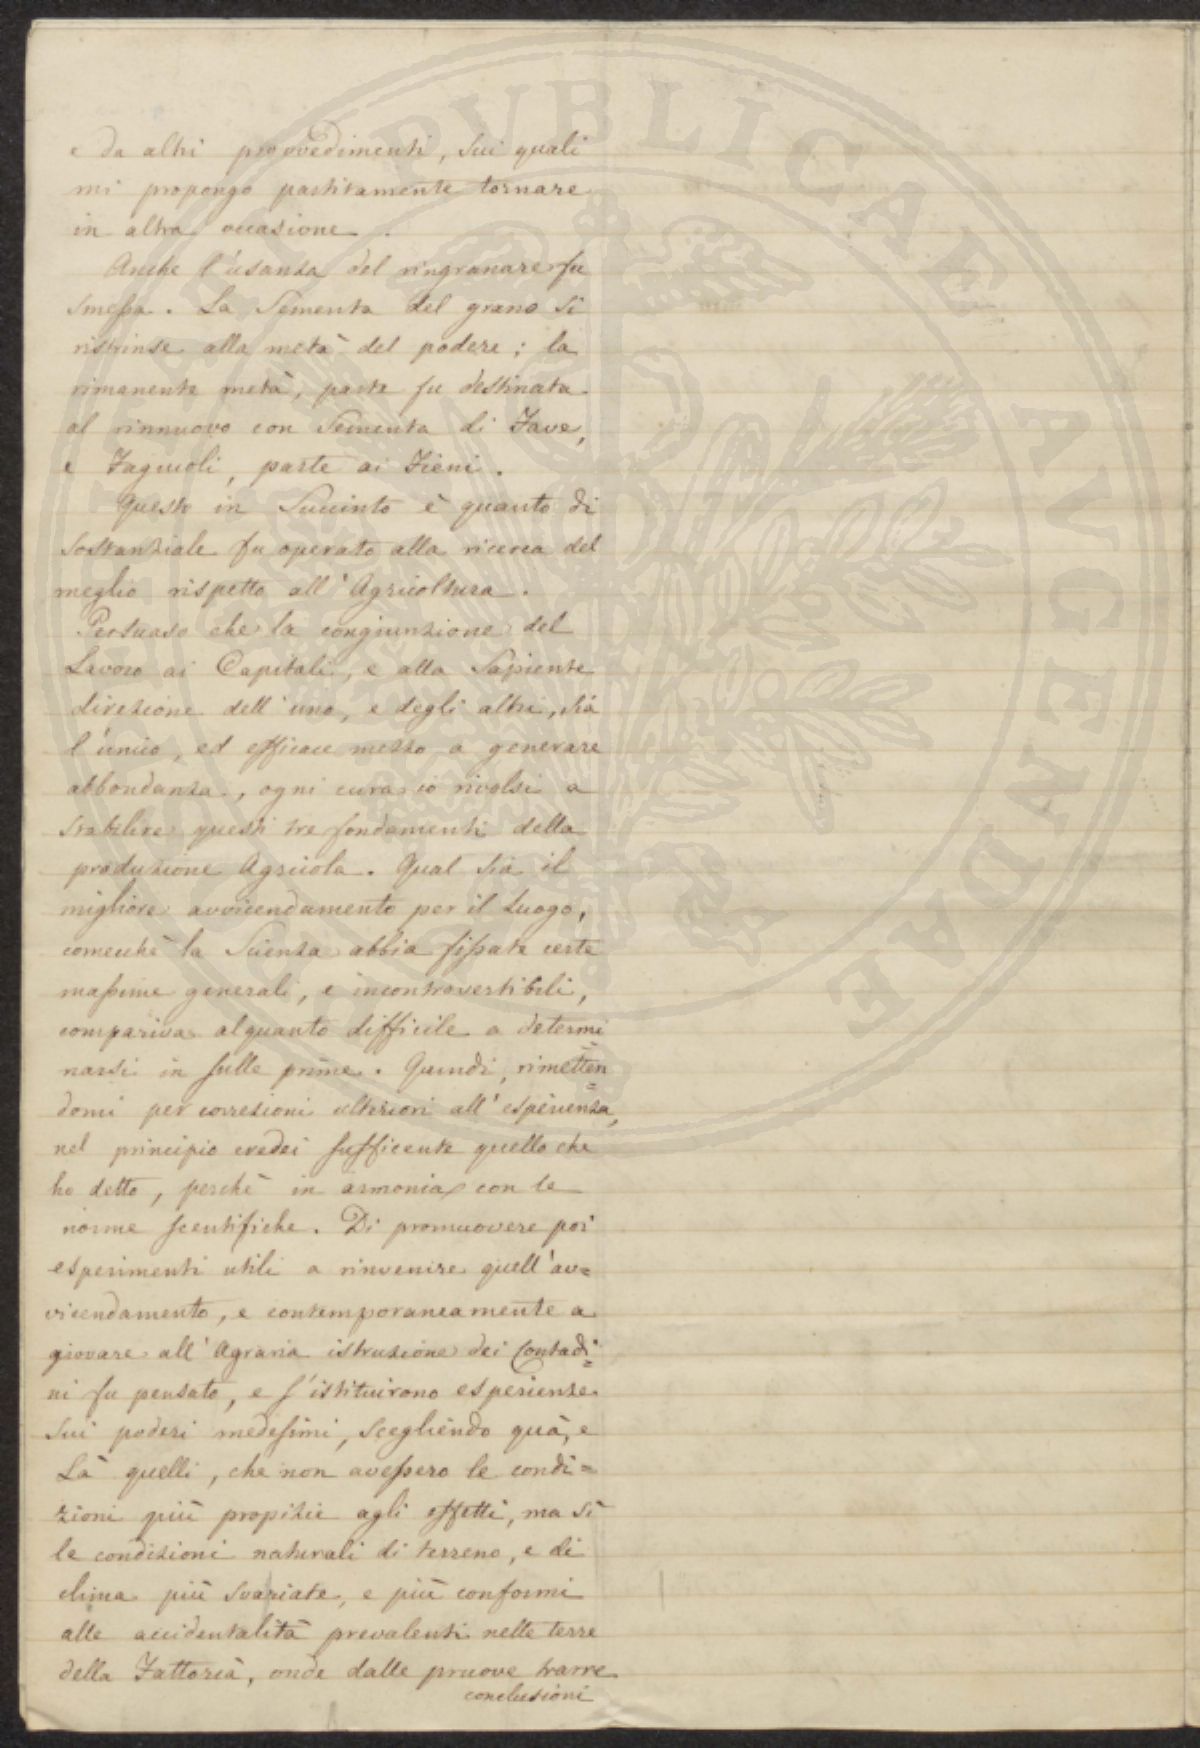 e da altri provvedimenti, sui quali
mi propongo partitamente tornare
in altra occasione.
Anche l'usanza del ringranare fu
smessa. La Sementa del grano si
ristrinse alla metà del podere; la
rimanente metà, parte fu destinata
al rinnuovo con Sementa di Fave,
e Fagiuoli, parte ai Fieni.
Questo in Succinto è quanto di
sostanziale fu operato alla ricerca del
meglio rispetto all'Agricoltura.
Persuaso che la congiunzione del
Lavoro ai Capitali, e alla Sapiente
direzione dell'uno, e degli altri, sia
l'unico, ed efficace mezzo a generare
abbondanza, ogni cura io rivolsi a
stabilire questi tre fondamenti della
produzione Agricola. Qual sia il
migliore avvicendamento per il Luogo,
comecchè la Scienza abbia fissate certe
massime generali, e incontrovertibili,
compariva alquanto difficile a determi=
narsi in sulle prime. Quindi, rimetten=
domi per correzioni ulteriori all'esperienza,
nel principio credei sufficente quello che
ho detto, perchè in armonia con le
norme scentifiche. Di promuovere poi
esperimenti utili a rinvenire quell'av=
vicendamento, e contemporaneamente a
giovare all'Agraria istruzione dei Contadi=
ni fu pensato, e s'istituirono esperienze
sui poderi medesimi, scegliendo quà, e
Là quelli, che non avessero le condi=
zioni più propizie agli effetti, ma sì
le condizioni naturali di terreno, e di
clima più svariate, e più conformi
alle accidentalità prevalenti nelle terre
della Fattoria, onde dalle pruove trarre
conclusioni
PVBLICAE AVGENDAE